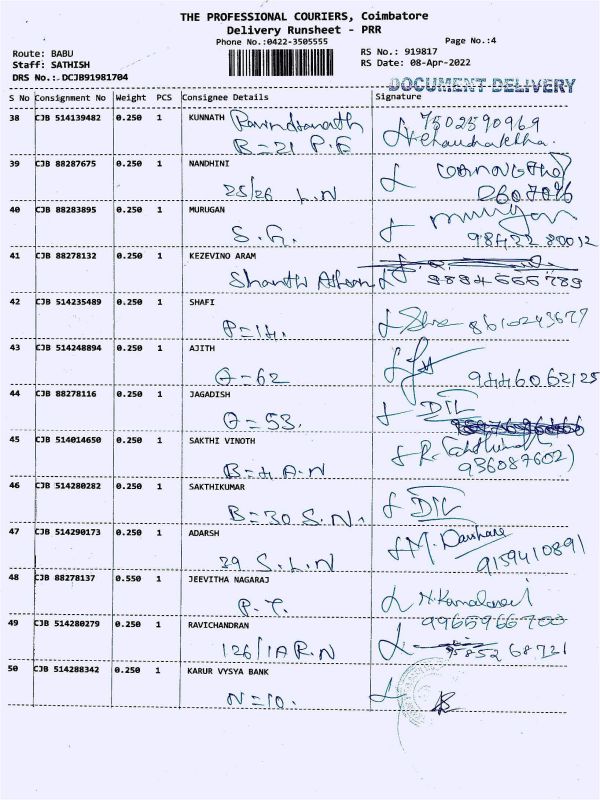 THE PROFESSIONAL COURIERS, Coimbatore
Delivery Runsheet - PRR
Phone No.:0422-3505555
Page No.:4
Route: BABU
RS No.: 919817
Staff: SATHISH
RS Date: 08-Apr-2022
DRS No.:DCJB91981704
DOCUMENT DELIVERY
S No Consignment No Weight PCS Consignee Details Signature
38 CJB 514139482 0.250 1 KUNNATH Ravindranath 7502590969
B=21 P.E
39 CJB 88287675 0.250 1 NANDHINI
25/26 L.N
40 CJB 88283895 0.250 1 MURUGAN Murugan
S.G. 98422 80012
41 CJB 88278132 0.250 1 KEZEVINO ARAM
Shanthi 9884666789
42 CJB 514235489 0.250 1 SHAFI
P=14. 8610243677
43 CJB 514248894 0.250 1 AJITH
G=62 9446062125
44 CJB 88278116 0.250 1 JAGADISH DIL
G=53.
45 CJB 514014650 0.250 1 SAKTHI VINOTH
B=4 A.N 936087602
46 CJB 514280282 0.250 1 SAKTHIKUMAR
B=30 S.N. DIL
47 CJB 514290173 0.250 1 ADARSH M.
39 S.L.N 9159410891
48 CJB 88278137 0.550 1 JEEVITHA NAGARAJ
P.T.
49 CJB 514280279 0.250 1 RAVICHANDRAN 9965966700
126/1A R.N 95852 68721
50 CJB 514288342 0.250 1 KARUR VYSYA BANK
N=10.